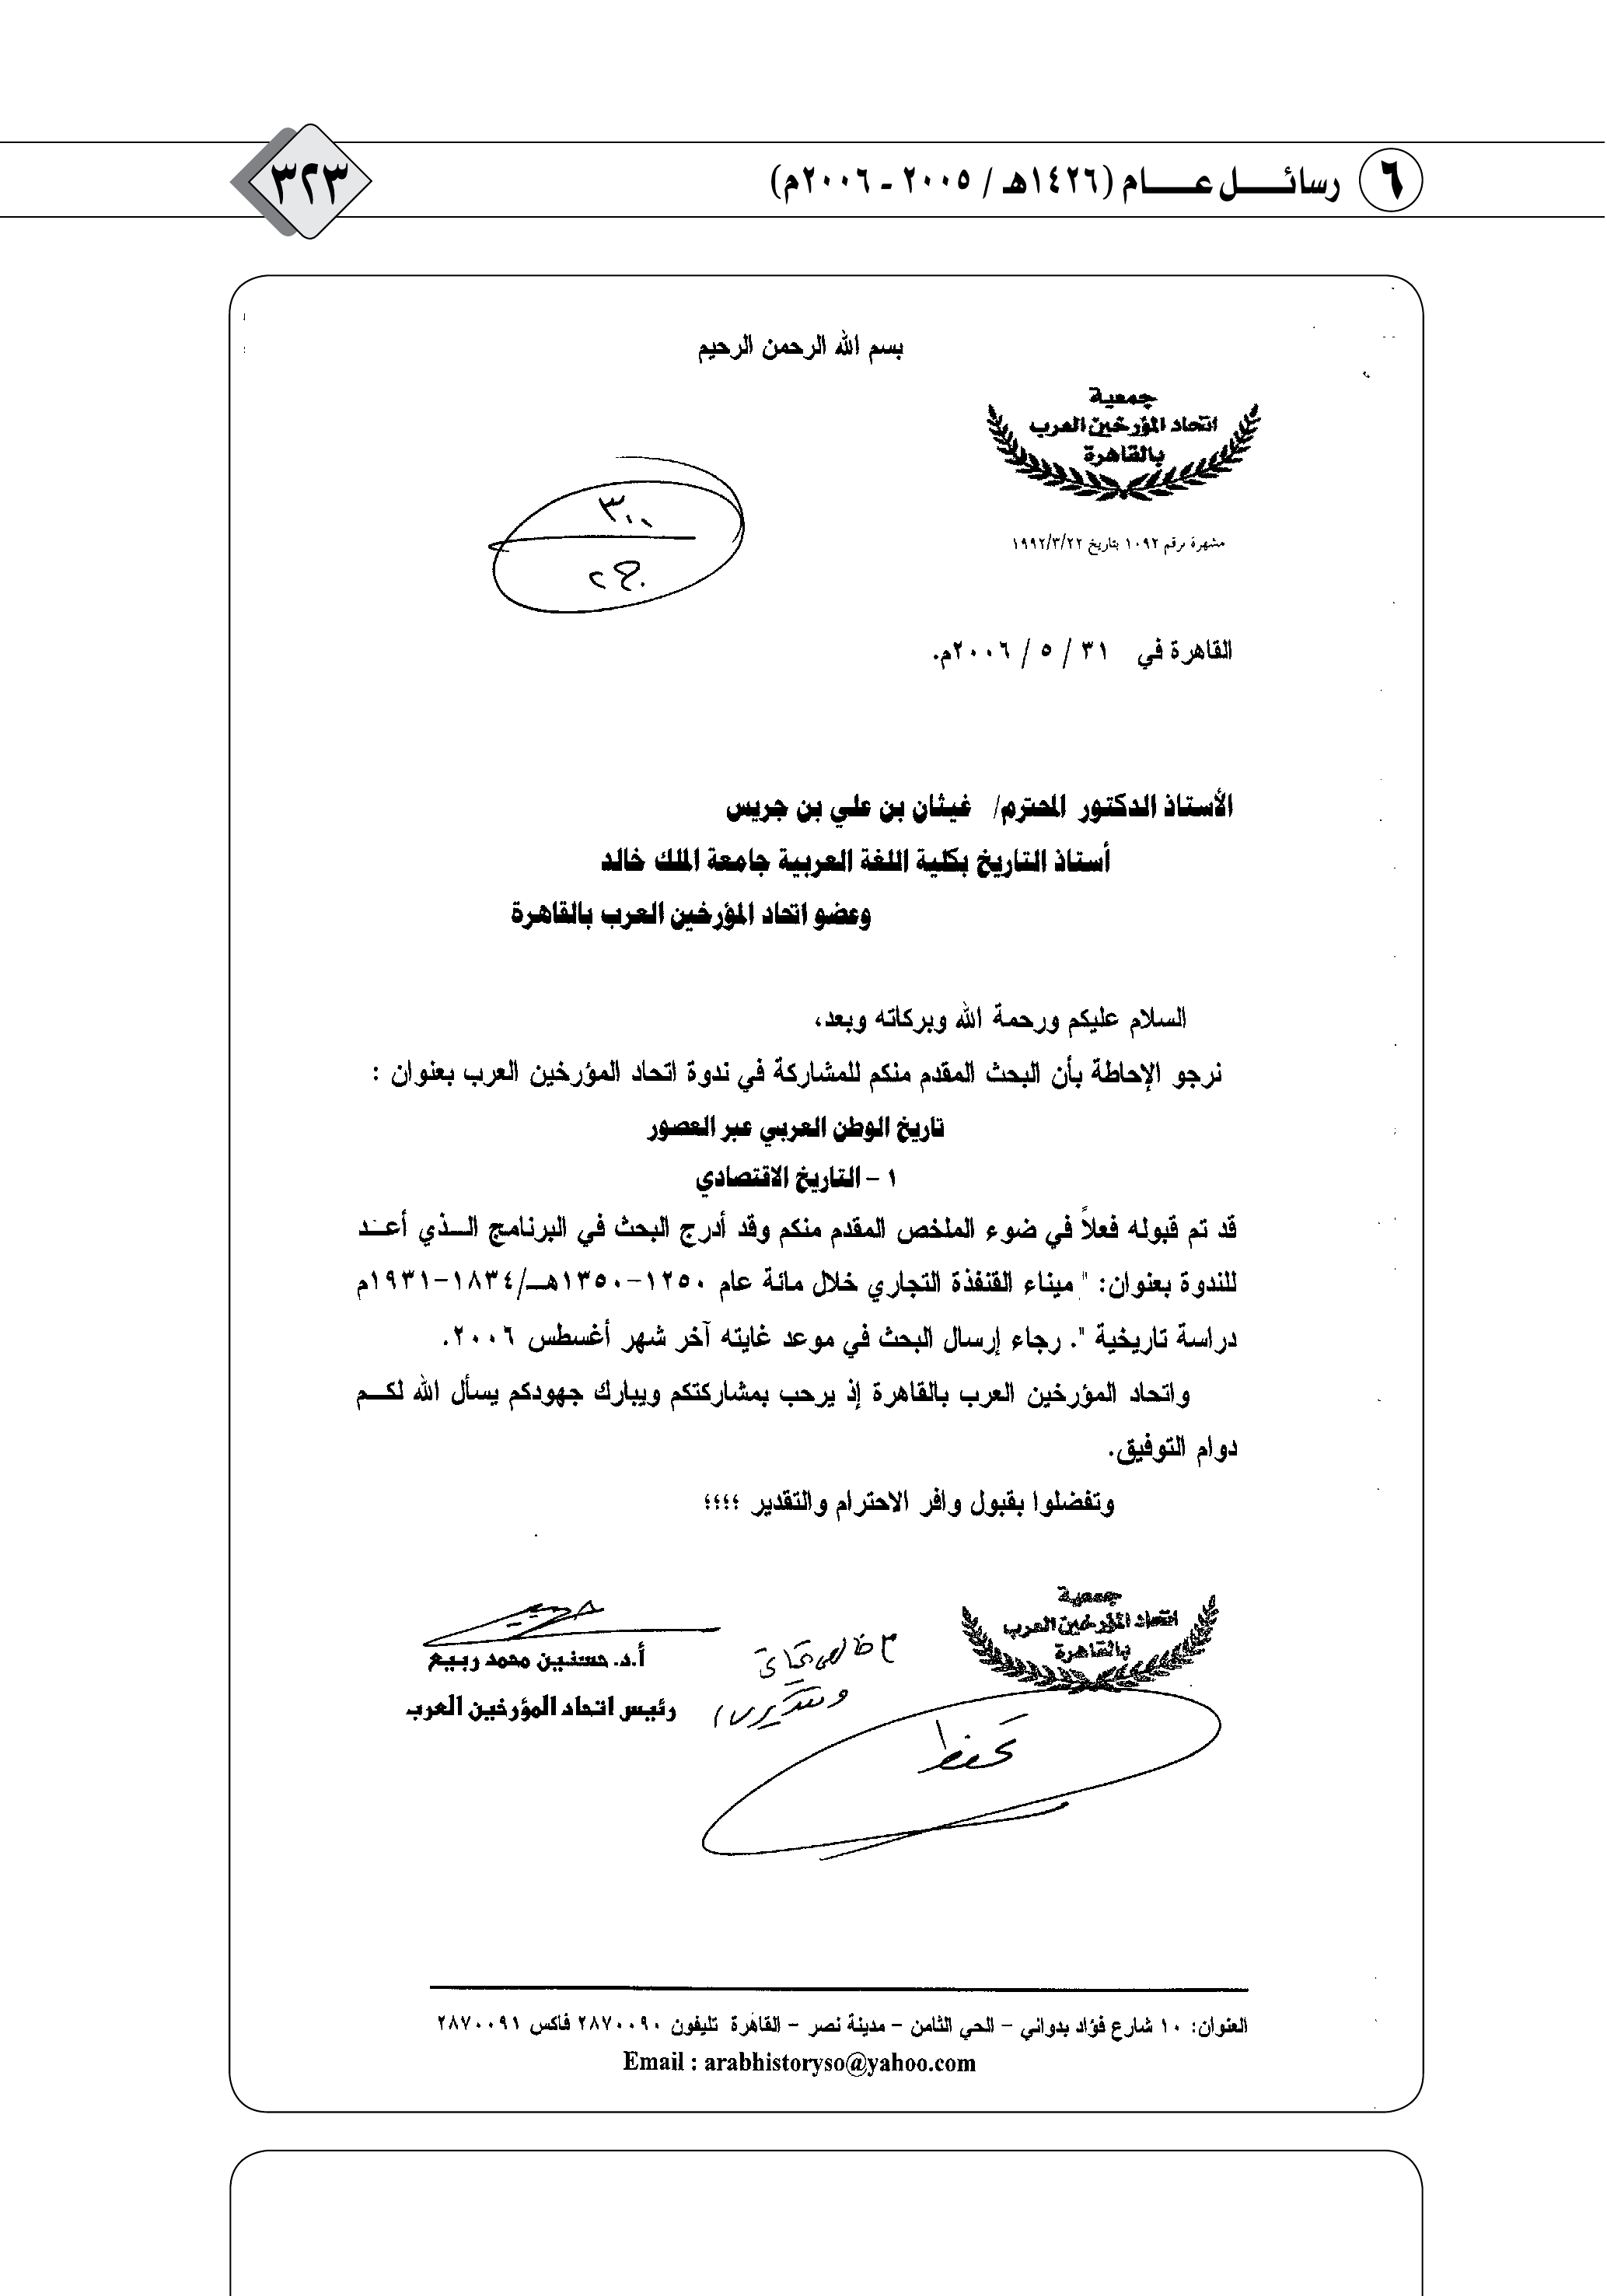 ٦ رسائل عام (١٤٢٦هـ / ٢٠٠٥ - ٢٠٠٦م)
٣٢٣
بسم الله الرحمن الرحيم
جمعية
اتحاد المؤرخين العرب
بالقاهرة
مشهرة برقم ١٠٩٢ بتاريخ ١٩٩٢/٣/٢٢
٣٠٠
ج٢
القاهرة في ٣١ / ٥ / ٢٠٠٦م.
الأستاذ الدكتور المحترم/ غيثان بن علي بن جريس
أستاذ التاريخ بكلية اللغة العربية جامعة الملك خالد
وعضو اتحاد المؤرخين العرب بالقاهرة
السلام عليكم ورحمة الله وبركاته وبعد،
نرجو الإحاطة بأن البحث المقدم منكم للمشاركة في ندوة اتحاد المؤرخين العرب بعنوان :
تاريخ الوطن العربي عبر العصور
١ – التاريخ الاقتصادي
قد تم قبوله فعلاً في ضوء الملخص المقدم منكم وقد أدرج البحث في البرنامج الذي أعد
للندوة بعنوان: " ميناء القنفذة التجاري خلال مائة عام ١٢٥٠-١٣٥٠هـ/١٨٣٤-١٩٣١م
دراسة تاريخية ". رجاء إرسال البحث في موعد غايته آخر شهر أغسطس ٢٠٠٦.
واتحاد المؤرخين العرب بالقاهرة إذ يرحب بمشاركتكم ويبارك جهودكم يسأل الله لكم
دوام التوفيق.
وتفضلوا بقبول وافر الاحترام والتقدير ؛؛؛؛
جمعية
اتحاد المؤرخين العرب
بالقاهرة
مع خالص تحياتي
وتقديري
أ.د. حسنين محمد ربيع
رئيس اتحاد المؤرخين العرب
تحفظ
العنوان: ١٠ شارع فؤاد بدواني – الحي الثامن – مدينة نصر – القاهرة تليفون ٢٨٧٠٠٩٠ فاكس ٢٨٧٠٠٩١
Email : arabhistoryso@yahoo.com